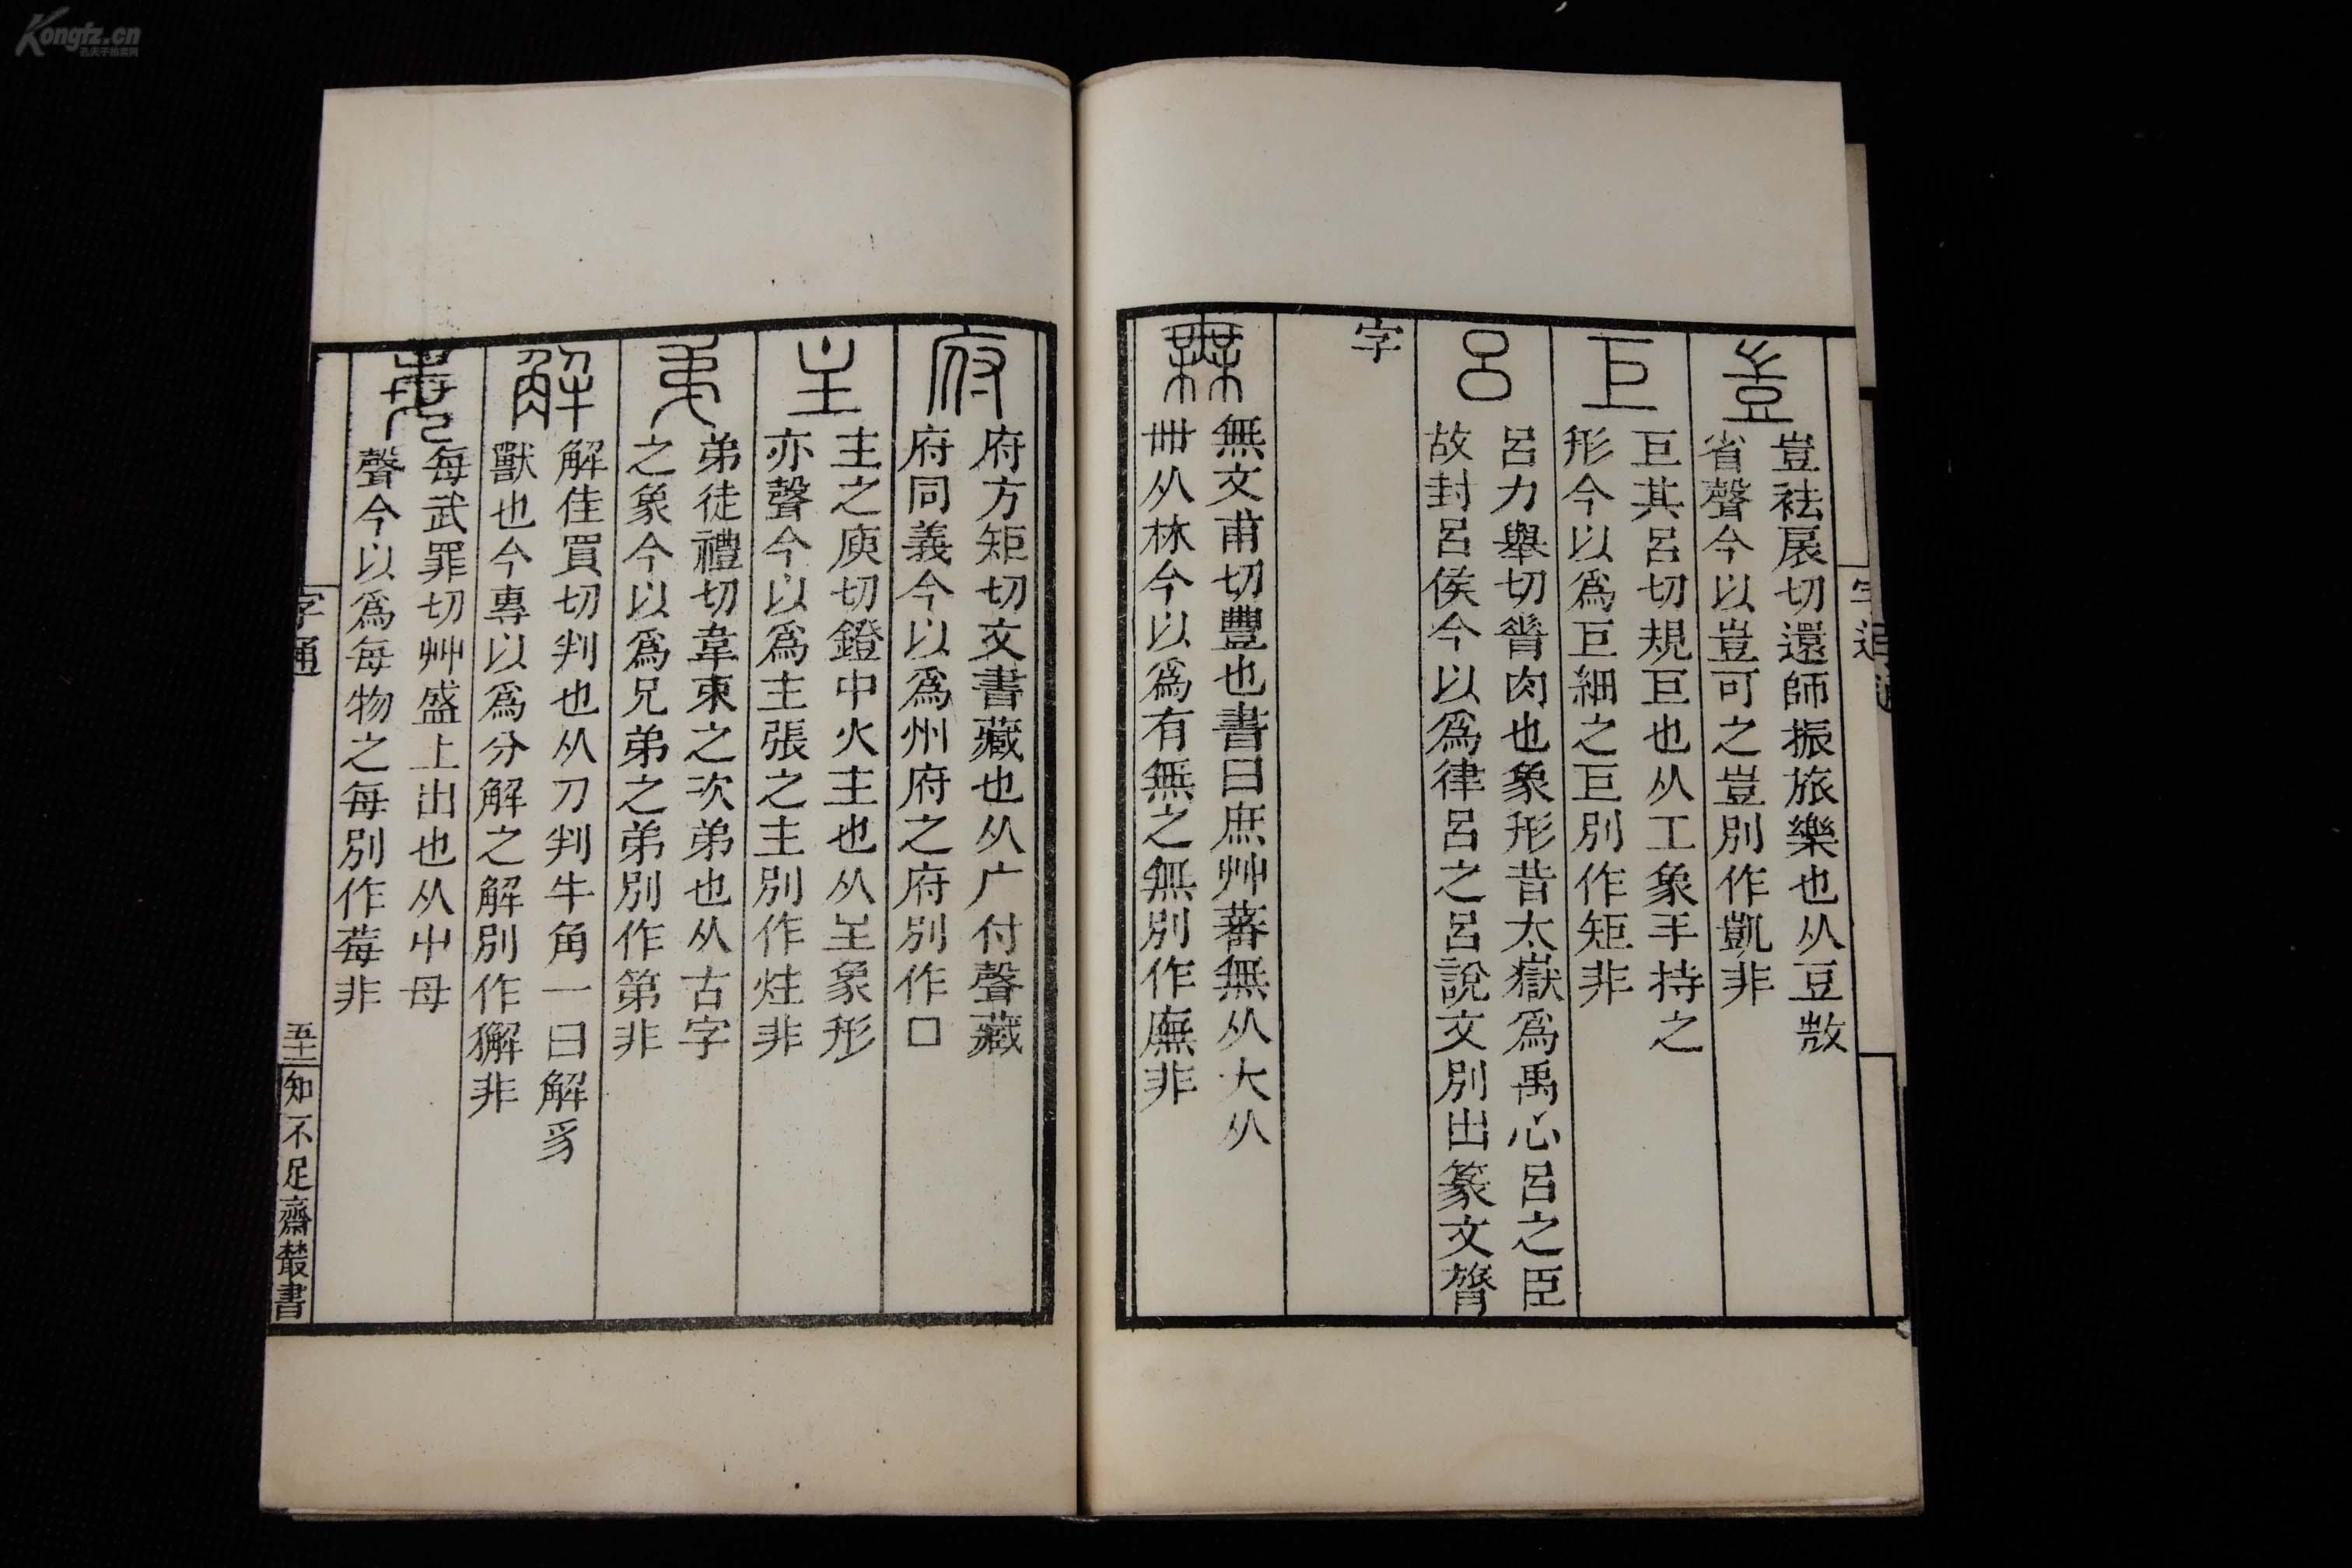 Kongfz.cn
孔夫子拍卖网
豈
豈袪展切還師振旅樂也从豆𢼸
省聲今以豈可之豈別作凱非
巨
巨其呂切規巨也从工象手持之
形今以爲巨細之巨別作矩非
呂
呂力舉切脊肉也象形昔太嶽爲禹心呂之臣
故封呂侯今以爲律呂之呂說文別出篆文膂
字
無
無文甫切豐也書曰庶艸蕃無从大从
卌从林今以爲有無之無別作廡非
府
府方矩切文書藏也从广付聲藏
府同義今以爲州府之府別作□
主
主之庾切鐙中火主也从𡈼象形
亦聲今以爲主張之主別作炷非
弟
弟徒禮切韋束之次弟也从古字
之象今以爲兄弟之弟別作第非
解
解佳買切判也从刀判牛角一曰解豸
獸也今專以爲分解之解別作獬非
每
每武罪切艸盛上出也从屮母
聲今以爲每物之每別作莓非
字通
五十一
知不足齋叢書